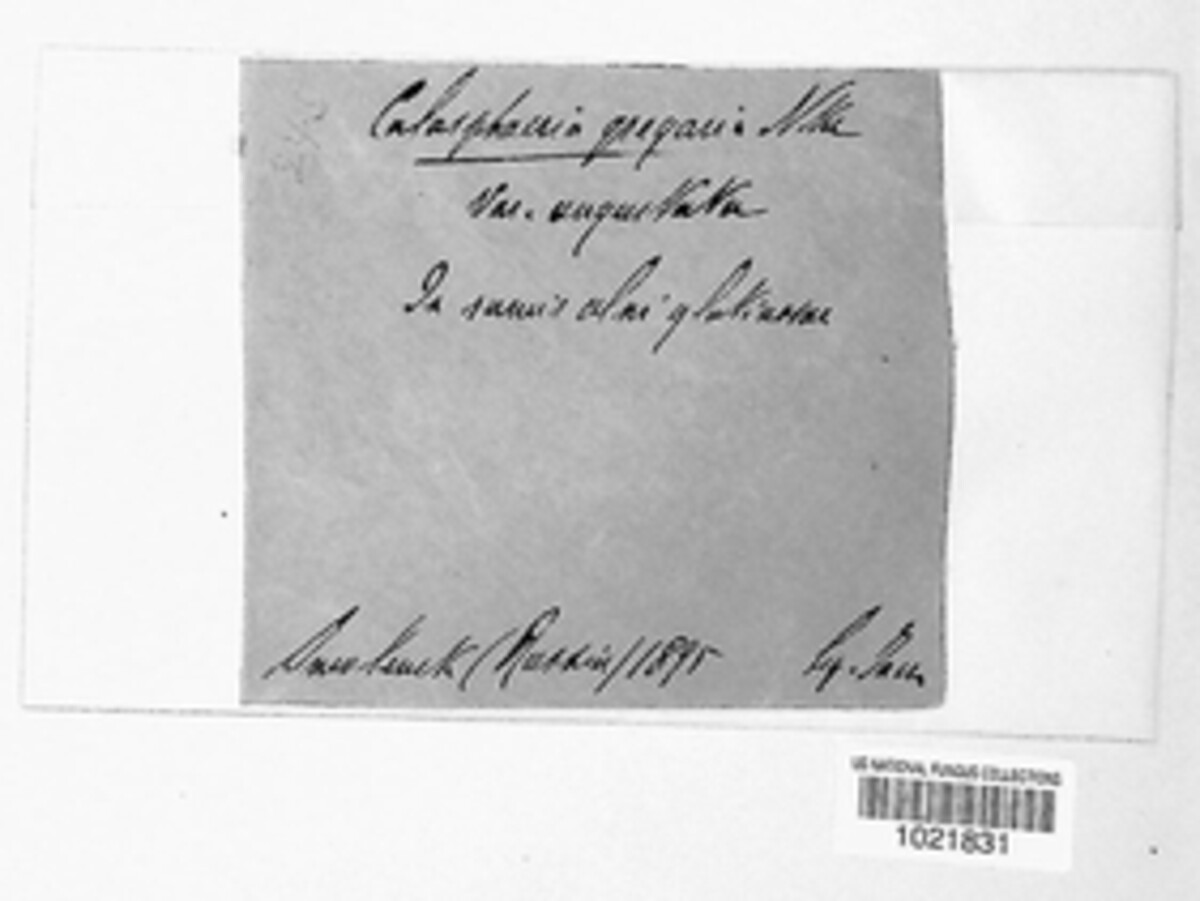 Calosphaeria gregaria Nke
Var. angustata
In ramis alni glutinosae
Smolensk (Russia) 1895
US NATIONAL FUNGUS COLLECTIONS
1021831